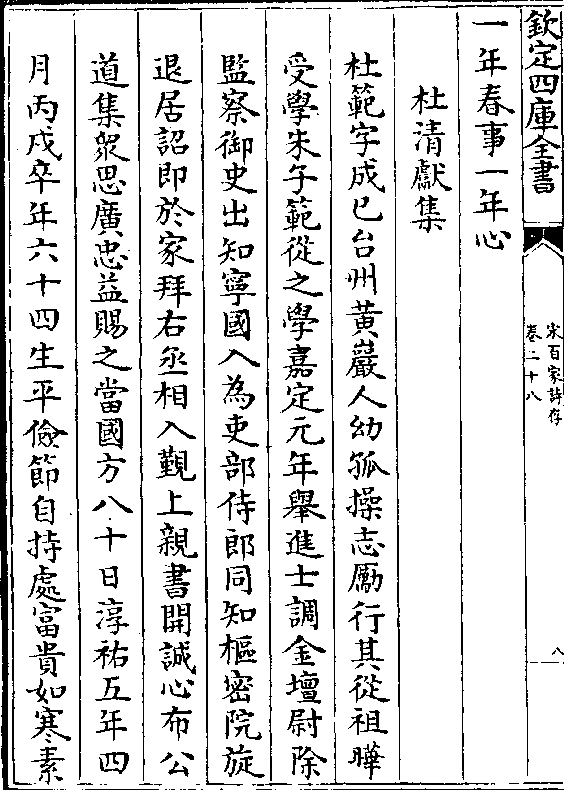 欽定四庫全書
宋百家詩存
卷二十八
八
一年春事一年心
杜清獻集
杜範字成已台州黃巖人幼孤操志厲行其從祖曄
受學朱子範從之學嘉定元年舉進士調金壇尉除
監察御史出知寧國入為吏部侍郎同知樞密院旋
退居詔即於家拜右丞相入覲上親書開誠心布公
道集眾思廣忠益賜之當國方八十日淳祐五年四
月丙戌卒年六十四生平儉節自持處富貴如寒素